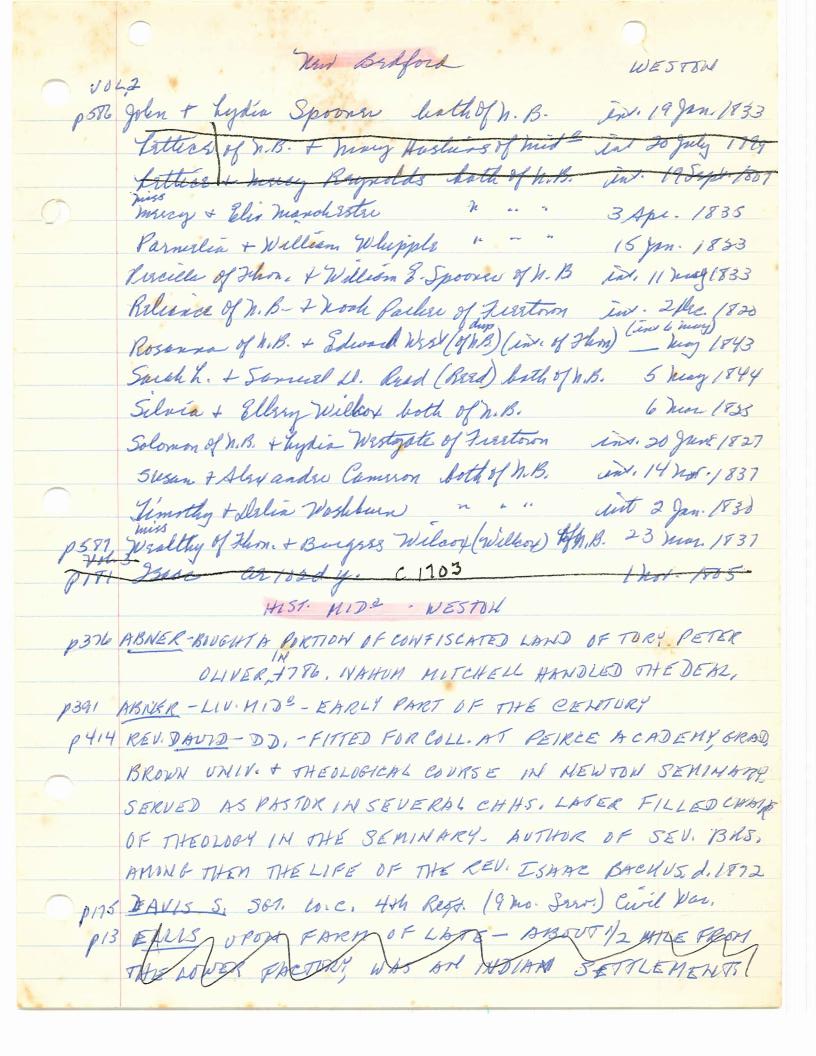 New Bedford WESTON
VOL, 2
p586 John + Lydia Spooner both of N.B. int. 19 Jan. 1833
Lettice of N.B. + Mary Haskins of Midᵒ int 20 July 1799
Lettice + Mercy Reynolds both of N.B. int. 19 Sept. 1807
miss
Mercy + Elis Manchester " " " 3 Apr. 1835
Parnelia + William Whipple " " " 15 Jan. 1823
Precilla of Fhvn. + William E. Spooner of N.B int. 11 May 1833
Reliance of N.B. + Noah Parker of Freetown int. 2 Dec. 1820
dup (int 6 may)
Rosanna of N.B. + Edward West (of N.B) (int. of Fhvn) __ May 1843
Sarah L. + Samuel D. Read (Reed) both of N.B. 5 May 1844
Silvia + Ellery Wilcox both of N.B. 6 Mar. 1825
Solomon of N.B. + Lydia Westgate of Freetown int. 20 June 1827
Susan + Alexander Cameron both of N.B. int. 14 Nov. 1837
Timothy + Delia Washburn " " " int 2 Jan. 1830
miss
p587 Wealthy of Fhvn. + Burgess Wilcox (Wilcox) of N.B. 23 Mar. 1837
Vol. 3
p181 Isaac C 1703 1 Nov. 1805
HIST. MIDᵒ - WESTON
p376 ABNER - BOUGHT A PORTION OF CONFISCATED LAND OF TORY, PETER
OLIVER, IN 1786. NAHUM MITCHELL HANDLED THE DEAL,
p391 ABNER - LIV. MIDᵒ - EARLY PART OF THE CENTURY
p414 REV. DAVID - DD. - FITTED FOR COLL. AT PEIRCE ACADEMY, GRAD,
BROWN UNIV. + THEOLOGICAL COURSE IN NEWTON SEMINARY
SERVED AS PASTOR IN SEVERAL CHHS. LATER FILLED CHAIR
OF THEOLOGY IN THE SEMINARY - AUTHOR OF SEV. BKS.
AMONG THEM THE LIFE OF THE REV. ISAAC BACKUS, d. 1872
p175 DAVIS S. SGT. Co. C. 4th Regt. (9 Mo. Serv.) Civil War.
p13 ELLIS UPON FARM OF LATE - ABOUT 1/2 MILE FROM
THE LOWER FACTORY, WAS AN INDIAN SETTLEMENT